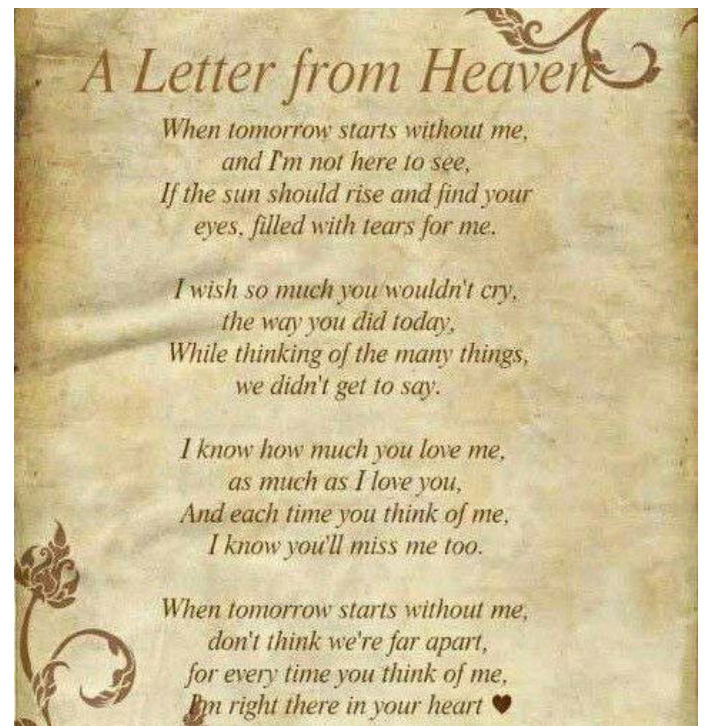 A Letter from Heaven
When tomorrow starts without me,
and I'm not here to see,
If the sun should rise and find your
eyes, filled with tears for me.
I wish so much you wouldn't cry,
the way you did today,
While thinking of the many things,
we didn't get to say.
I know how much you love me,
as much as I love you,
And each time you think of me,
I know you'll miss me too.
When tomorrow starts without me,
don't think we're far apart,
for every time you think of me,
I'm right there in your heart ♥